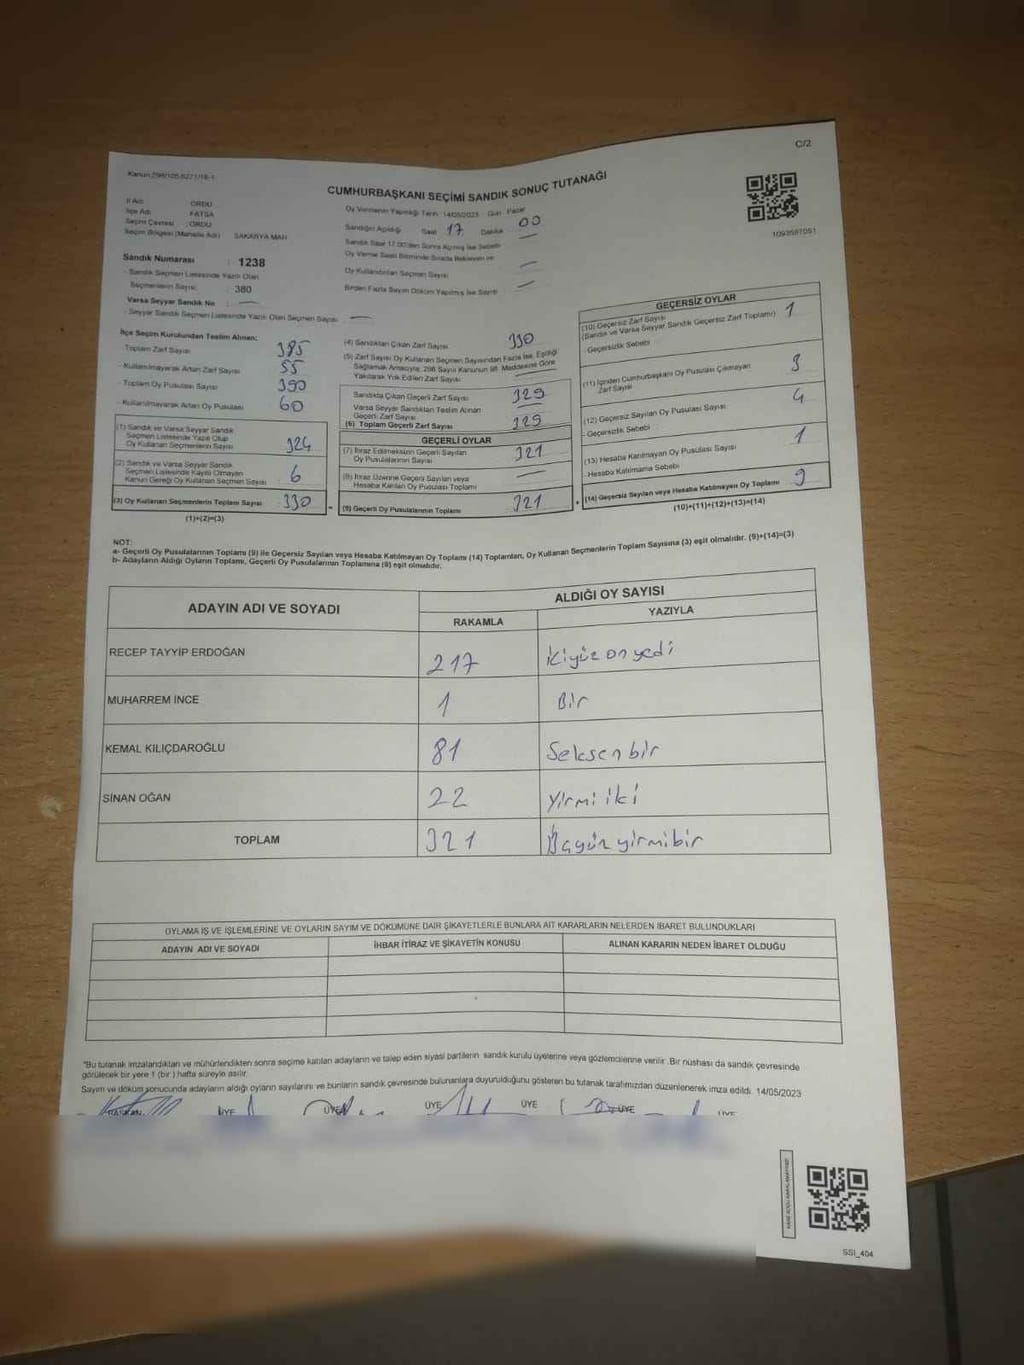 C/2
Kanun:298/105.6271/18-1
CUMHURBAŞKANI SEÇİMİ SANDIK SONUÇ TUTANAĞI
1093587051
İl Adı ORDU
İlçe Adı FATSA
Seçim Çevresi : ORDU
Seçim Bölgesi (Mahalle Adı) SAKARYA MAH
Sandık Numarası : 1238
Sandık Seçmen Listesinde Yazılı Olan
Seçmenlerin Sayısı : 380
Varsa Seyyar Sandık No : —
Seyyar Sandık Seçmen Listesinde Yazılı Olan Seçmen Sayısı —
Oy Vermenin Yapıldığı Tarih 14/05/2023 Gün Pazar
Sandığın Açıldığı Saat 17 Dakika 00
Sandık Saat 17.00'den Sonra Açılmış İse Sebebi —
Oy Verme Saati Bitiminde Sırada Bekleyen ve
Oy Kullandırılan Seçmen Sayısı —
Birden Fazla Sayım Döküm Yapılmış İse Sayısı —
İlçe Seçim Kurulundan Teslim Alınan:
Toplam Zarf Sayısı 385
Kullanılmayarak Artan Zarf Sayısı 55
Toplam Oy Pusulası Sayısı 390
Kullanılmayarak Artan Oy Pusulası 60
(1) Sandık ve Varsa Seyyar Sandık
Seçmen Listesinde Yazılı Olup
Oy Kullanan Seçmenlerin Sayısı 324
(2) Sandık ve Varsa Seyyar Sandık
Seçmen Listesinde Kayıtlı Olmayan
Kanun Gereği Oy Kullanan Seçmen Sayısı 6
(3) Oy Kullanan Seçmenlerin Toplam Sayısı 330
(1)+(2)=(3)
(4) Sandıktan Çıkan Zarf Sayısı 330
(5) Zarf Sayısı Oy Kullanan Seçmen Sayısından Fazla İse, Eşitliği
Sağlamak Amacıyla; 298 Sayılı Kanunun 98. Maddesine Göre
Yakılarak Yok Edilen Zarf Sayısı —
Sandıkta Çıkan Geçerli Zarf Sayısı 329
Varsa Seyyar Sandıktan Teslim Alınan
Geçerli Zarf Sayısı —
(6) Toplam Geçerli Zarf Sayısı 329
GEÇERLİ OYLAR
(7) İtiraz Edilmeksizin Geçerli Sayılan
Oy Pusulalarının Sayısı 321
(8) İtiraz Üzerine Geçerli Sayılan veya
Hesaba Katılan Oy Pusulası Toplamı —
(9) Geçerli Oy Pusulalarının Toplamı 321
GEÇERSİZ OYLAR
(10) Geçersiz Zarf Sayısı
(Sandık ve Varsa Seyyar Sandık Geçersiz Zarf Toplamı) 1
Geçersizlik Sebebi
(11) İçinden Cumhurbaşkanı Oy Pusulası Çıkmayan
Zarf Sayısı 3
(12) Geçersiz Sayılan Oy Pusulası Sayısı 4
Geçersizlik Sebebi
(13) Hesaba Katılmayan Oy Pusulası Sayısı 1
Hesaba Katılmama Sebebi
(14) Geçersiz Sayılan veya Hesaba Katılmayan Oy Toplamı 9
(10)+(11)+(12)+(13)=(14)
NOT:
a- Geçerli Oy Pusulalarının Toplamı (9) ile Geçersiz Sayılan veya Hesaba Katılmayan Oy Toplamı (14) Toplamları, Oy Kullanan Seçmenlerin Toplam Sayısına (3) eşit olmalıdır. (9)+(14)=(3)
b- Adayların Aldığı Oyların Toplamı, Geçerli Oy Pusulalarının Toplamına (9) eşit olmalıdır.
ADAYIN ADI VE SOYADI ALDIĞI OY SAYISI
RAKAMLA YAZIYLA
RECEP TAYYİP ERDOĞAN 217 İkiyüz on yedi
MUHARREM İNCE 1 Bir
KEMAL KILIÇDAROĞLU 81 Seksen bir
SİNAN OĞAN 22 Yirmi iki
TOPLAM 321 Üçyüz yirmi bir
OYLAMA İŞ VE İŞLEMLERİNE VE OYLARIN SAYIM VE DÖKÜMÜNE DAİR ŞİKAYETLERLE BUNLARA AİT KARARLARIN NELERDEN İBARET BULUNDUKLARI
ADAYIN ADI VE SOYADI İHBAR İTİRAZ VE ŞİKAYETİN KONUSU ALINAN KARARIN NEDEN İBARET OLDUĞU
*Bu tutanak imzalandıktan ve mühürlendikten sonra seçime katılan adayların ve talep eden siyasi partilerin sandık kurulu üyelerine veya gözlemcilerine verilir. Bir nüshası da sandık çevresinde
görülecek bir yere 1 (bir) hafta süreyle asılır.
Sayım ve döküm sonucunda adayların aldığı oyların sayılarını ve bunların sandık çevresinde bulunanlara duyurulduğunu gösteren bu tutanak tarafımızdan düzenlenerek imza edildi. 14/05/2023
BAŞKAN ÜYE ÜYE ÜYE ÜYE ÜYE ÜYE
SSİ_404